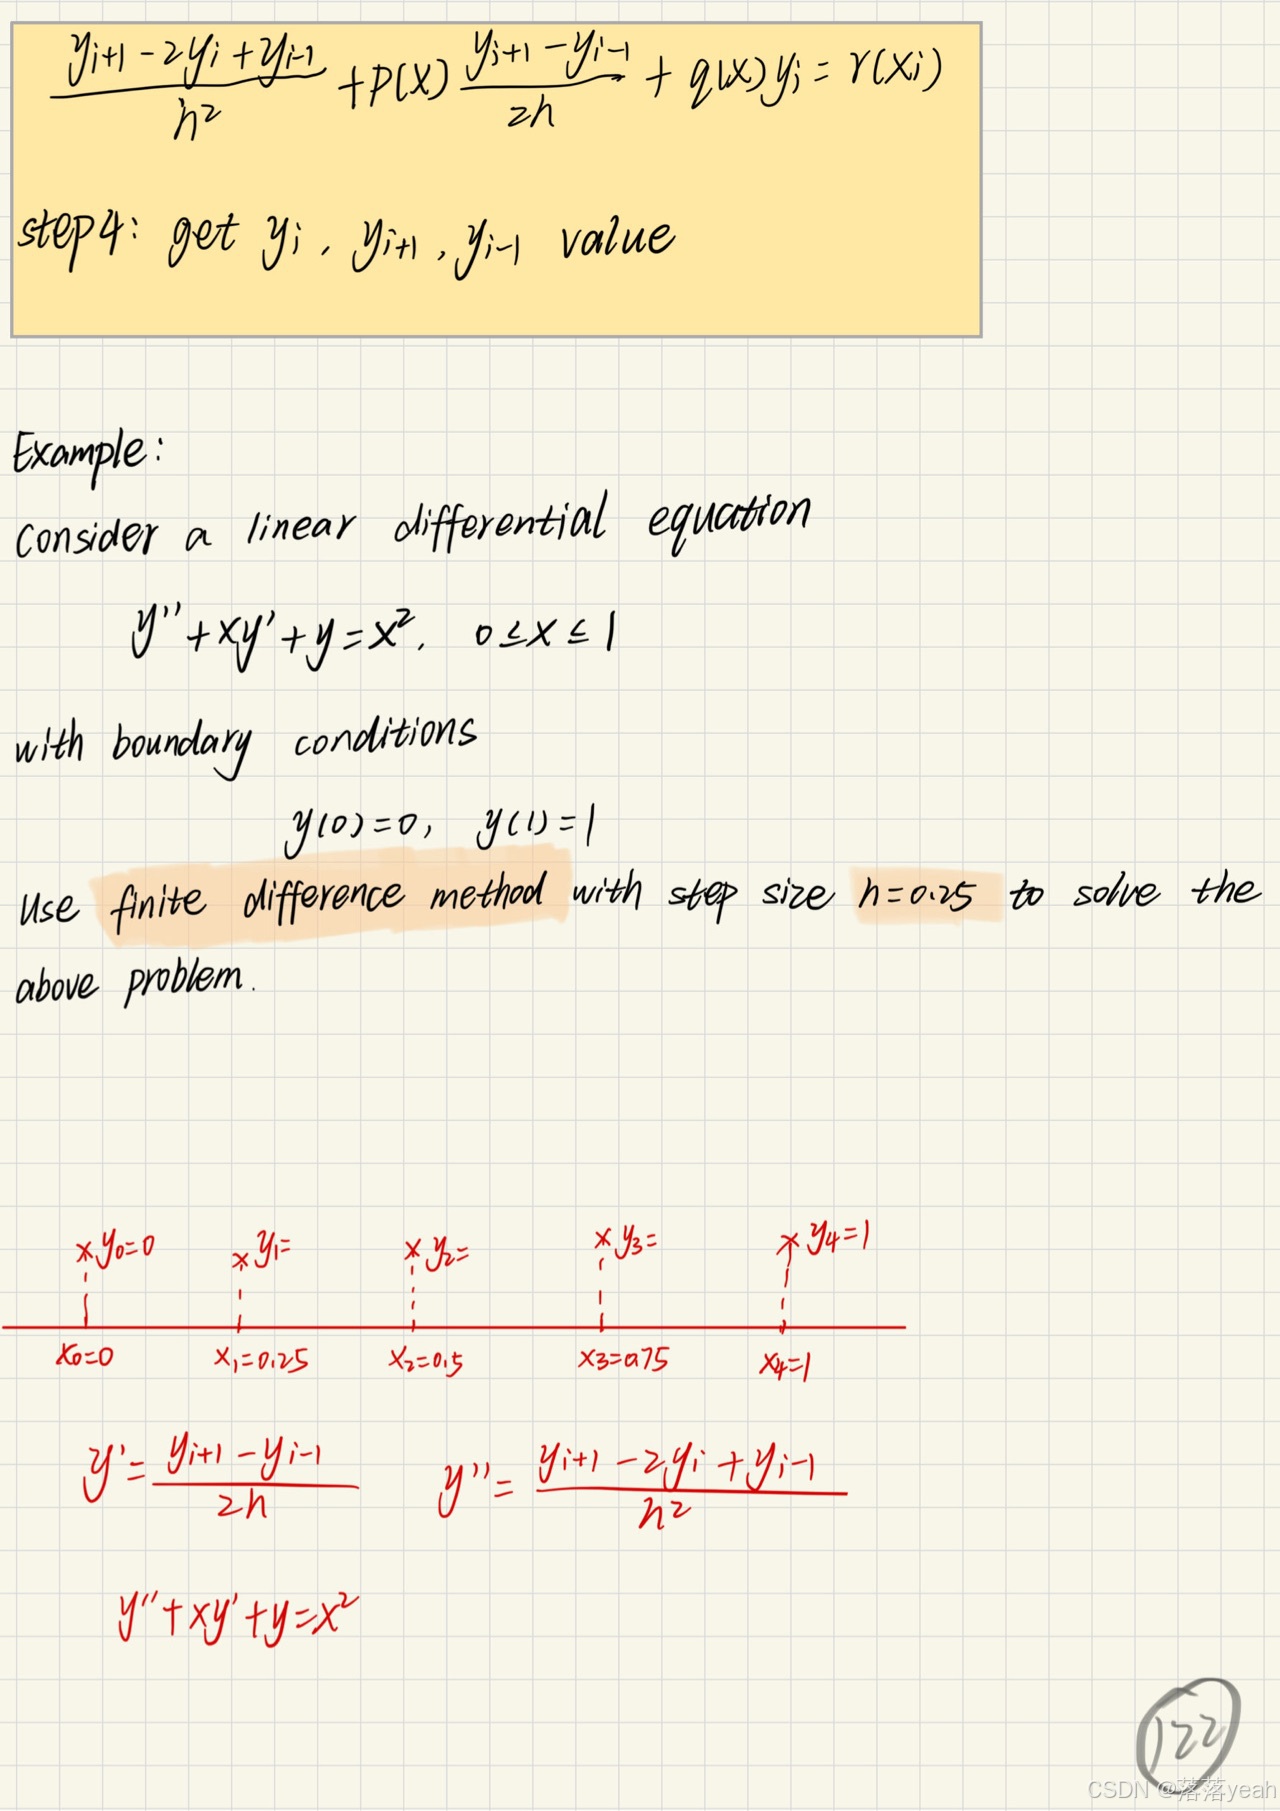 (yᵢ₊₁ - 2yᵢ + yᵢ₋₁)/h² + p(x) (yᵢ₊₁ - yᵢ₋₁)/2h + q(x)yᵢ = r(xᵢ)
step4: get yᵢ, yᵢ₊₁, yᵢ₋₁ value
Example:
Consider a linear differential equation
y'' + xy' + y = x², 0 ≤ x ≤ 1
with boundary conditions
y(0)=0, y(1)=1
Use finite difference method with step size h=0.25 to solve the
above problem.
y₀=0 y₁= y₂= y₃= y₄=1
x₀=0 x₁=0.25 x₂=0.5 x₃=0.75 x₄=1
y' = (yᵢ₊₁ - yᵢ₋₁)/2h y'' = (yᵢ₊₁ - 2yᵢ + yᵢ₋₁)/h²
y'' + xy' + y = x²
122
CSDN @落落yeah